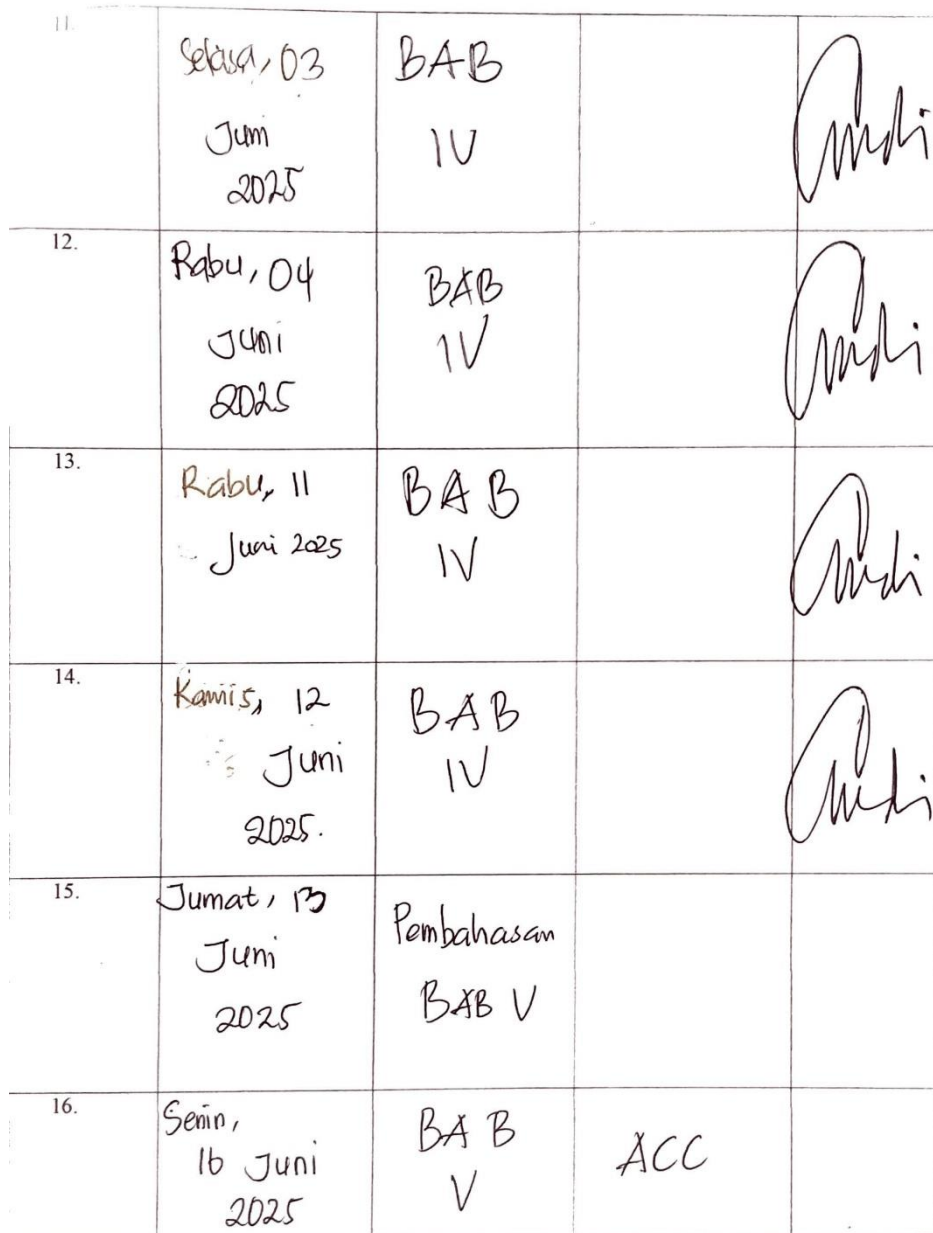 11.
Selasa, 03
Juni
2025
BAB
IV
12.
Rabu, 04
Juni
2025
BAB
IV
13.
Rabu, 11
Juni 2025
BAB
IV
14.
Kamis, 12
Juni
2025.
BAB
IV
15.
Jumat, 13
Juni
2025
Pembahasan
BAB V
16.
Senin,
16 Juni
2025
BAB
V
ACC